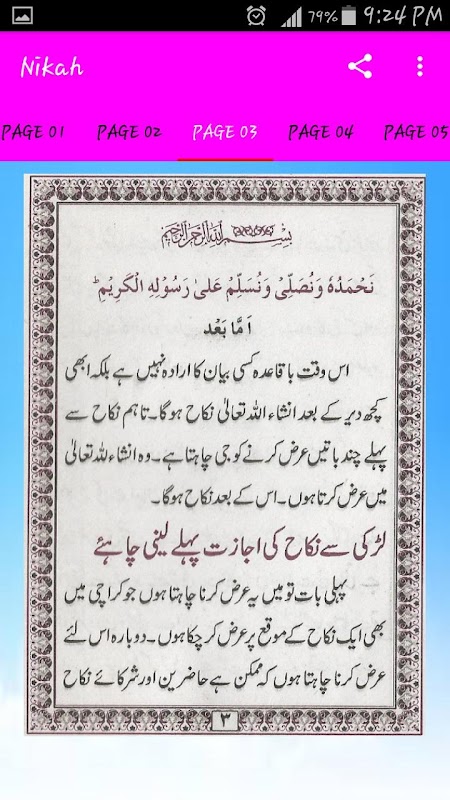 79% 9:24 PM
Nikah
PAGE 01 PAGE 02 PAGE 03 PAGE 04 PAGE 05
بِسْمِ اللهِ الرَّحْمٰنِ الرَّحِيْمِ
نَحْمَدُهٗ وَنُصَلِّیْ وَنُسَلِّمُ عَلیٰ رَسُوْلِهِ الْكَرِيْمِ ط
اَمَّا بَعْد
اس وقت باقاعدہ کسی بیان کا ارادہ نہیں ہے بلکہ ابھی
کچھ دیر کے بعد انشاء اللہ تعالیٰ نکاح ہوگا۔ تاہم نکاح سے
پہلے چند باتیں عرض کرنے کو جی چاہتا ہے۔ وہ انشاء اللہ تعالیٰ
میں عرض کرتا ہوں۔ اس کے بعد نکاح ہوگا۔
لڑکی سے نکاح کی اجازت پہلے لینی چاہئے
پہلی بات تو میں یہ عرض کرنا چاہتا ہوں جو کراچی میں
بھی ایک نکاح کے موقع پر عرض کر چکا ہوں۔ دوبارہ اس لئے
عرض کرنا چاہتا ہوں کہ ممکن ہے حاضرین اور شرکائے نکاح
۳